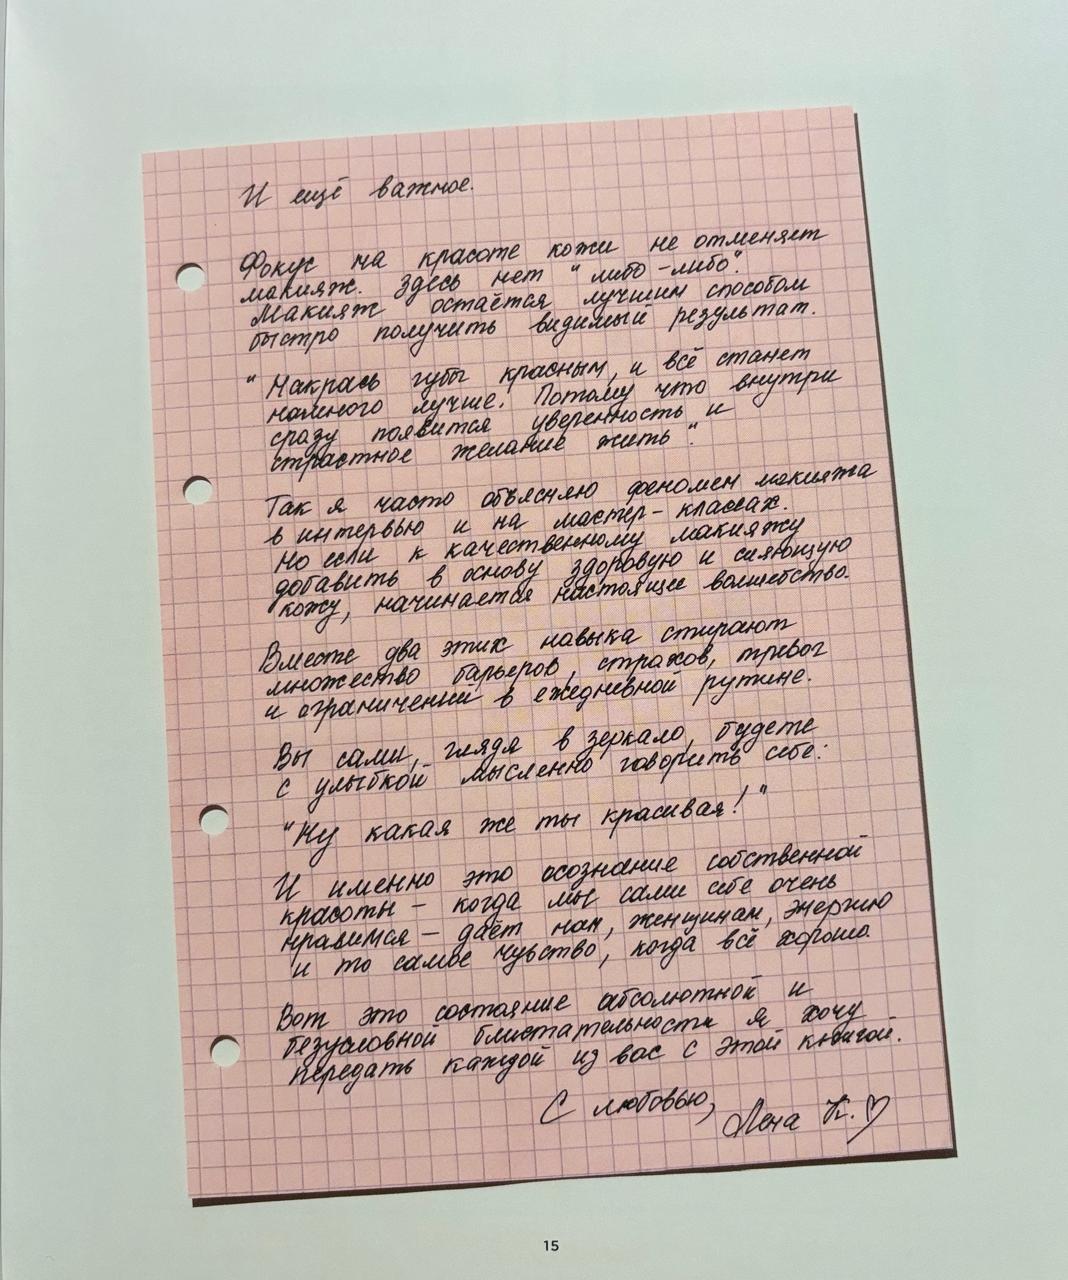 И ещё важное.
Фокус на красоте кожи не отменяет
макияж. Здесь нет "либо-либо".
Макияж остаётся лучшим способом
быстро получить видимый результат.
"Накрась губы красным, и всё станет
намного лучше. Потому что внутри
сразу появится уверенность и
страстное желание жить".
Так я часто объясняю феномен макияжа
в интервью и на мастер-классах.
Но если к качественному макияжу
добавить в основу здоровую и сияющую
кожу, начинается настоящее волшебство.
Вместе два этих навыка стирают
множество барьеров, страхов, тревог
и ограничений в ежедневной рутине.
Вы сами, глядя в зеркало, будете
с улыбкой мысленно говорить себе:
"Ну какая же ты красивая!"
И именно это осознание собственной
красоты – когда мы сами себе очень
нравимся – даёт нам, женщинам, энергию
и то самое чувство, когда всё хорошо.
Вот это состояние абсолютной и
безусловной блистательности я хочу
передать каждой из вас с этой книгой.
С любовью,
Лена К.
15